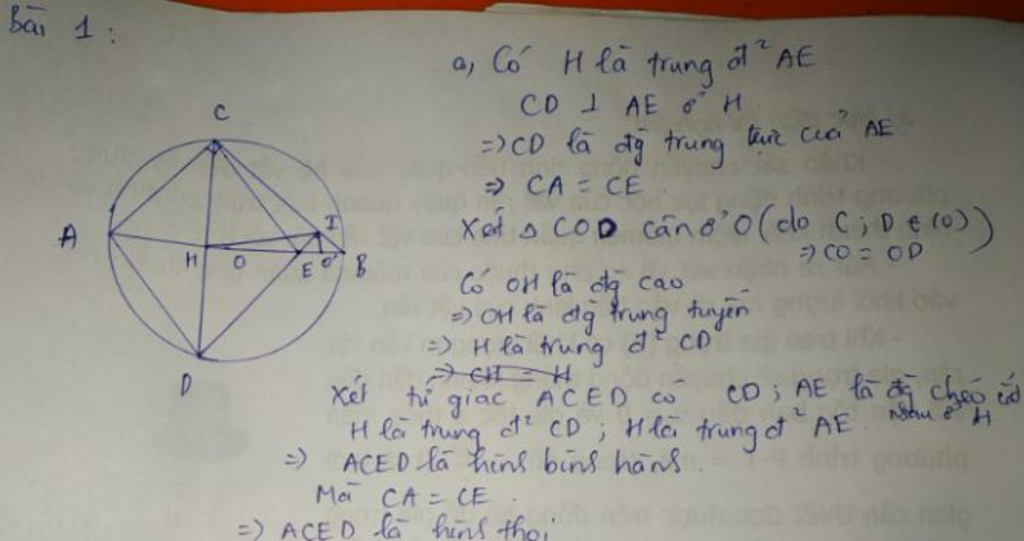 Bài 1:
a, Có H là trung đ² AE
CD ⊥ AE ở H
=> CD là đg trung trực của AE
=> CA = CE
Xét △ COD cân ở O (do C; D ∈ (O))
=> CO = OD
Có OH là đg cao
=> OH là đg trung tuyến
=> H là trung đ² CD
=> CH = H
Xét tứ giác ACED có CD; AE là đg chéo cắt
nhau ở H
H là trung đ² CD; H là trung đ² AE
=> ACED là hình bình hành.
Mà CA = CE
=> ACED là hình thoi
C
A
H O E O' B
I
D